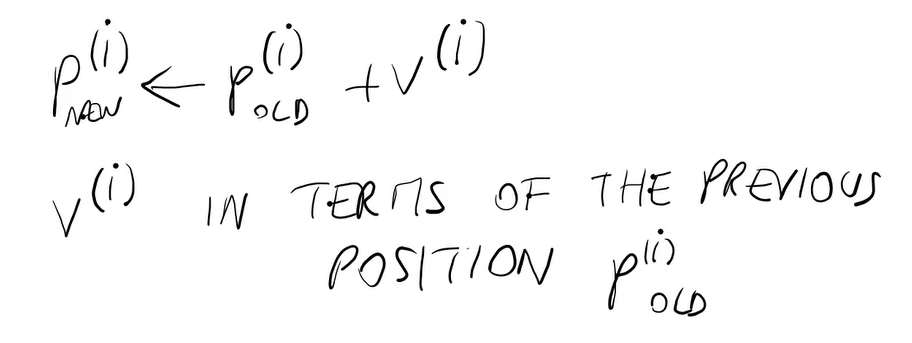 p^(i)_NEW ← p^(i)_OLD + v^(i)
v^(i) IN TERMS OF THE PREVIOUS
POSITION p^(i)_OLD